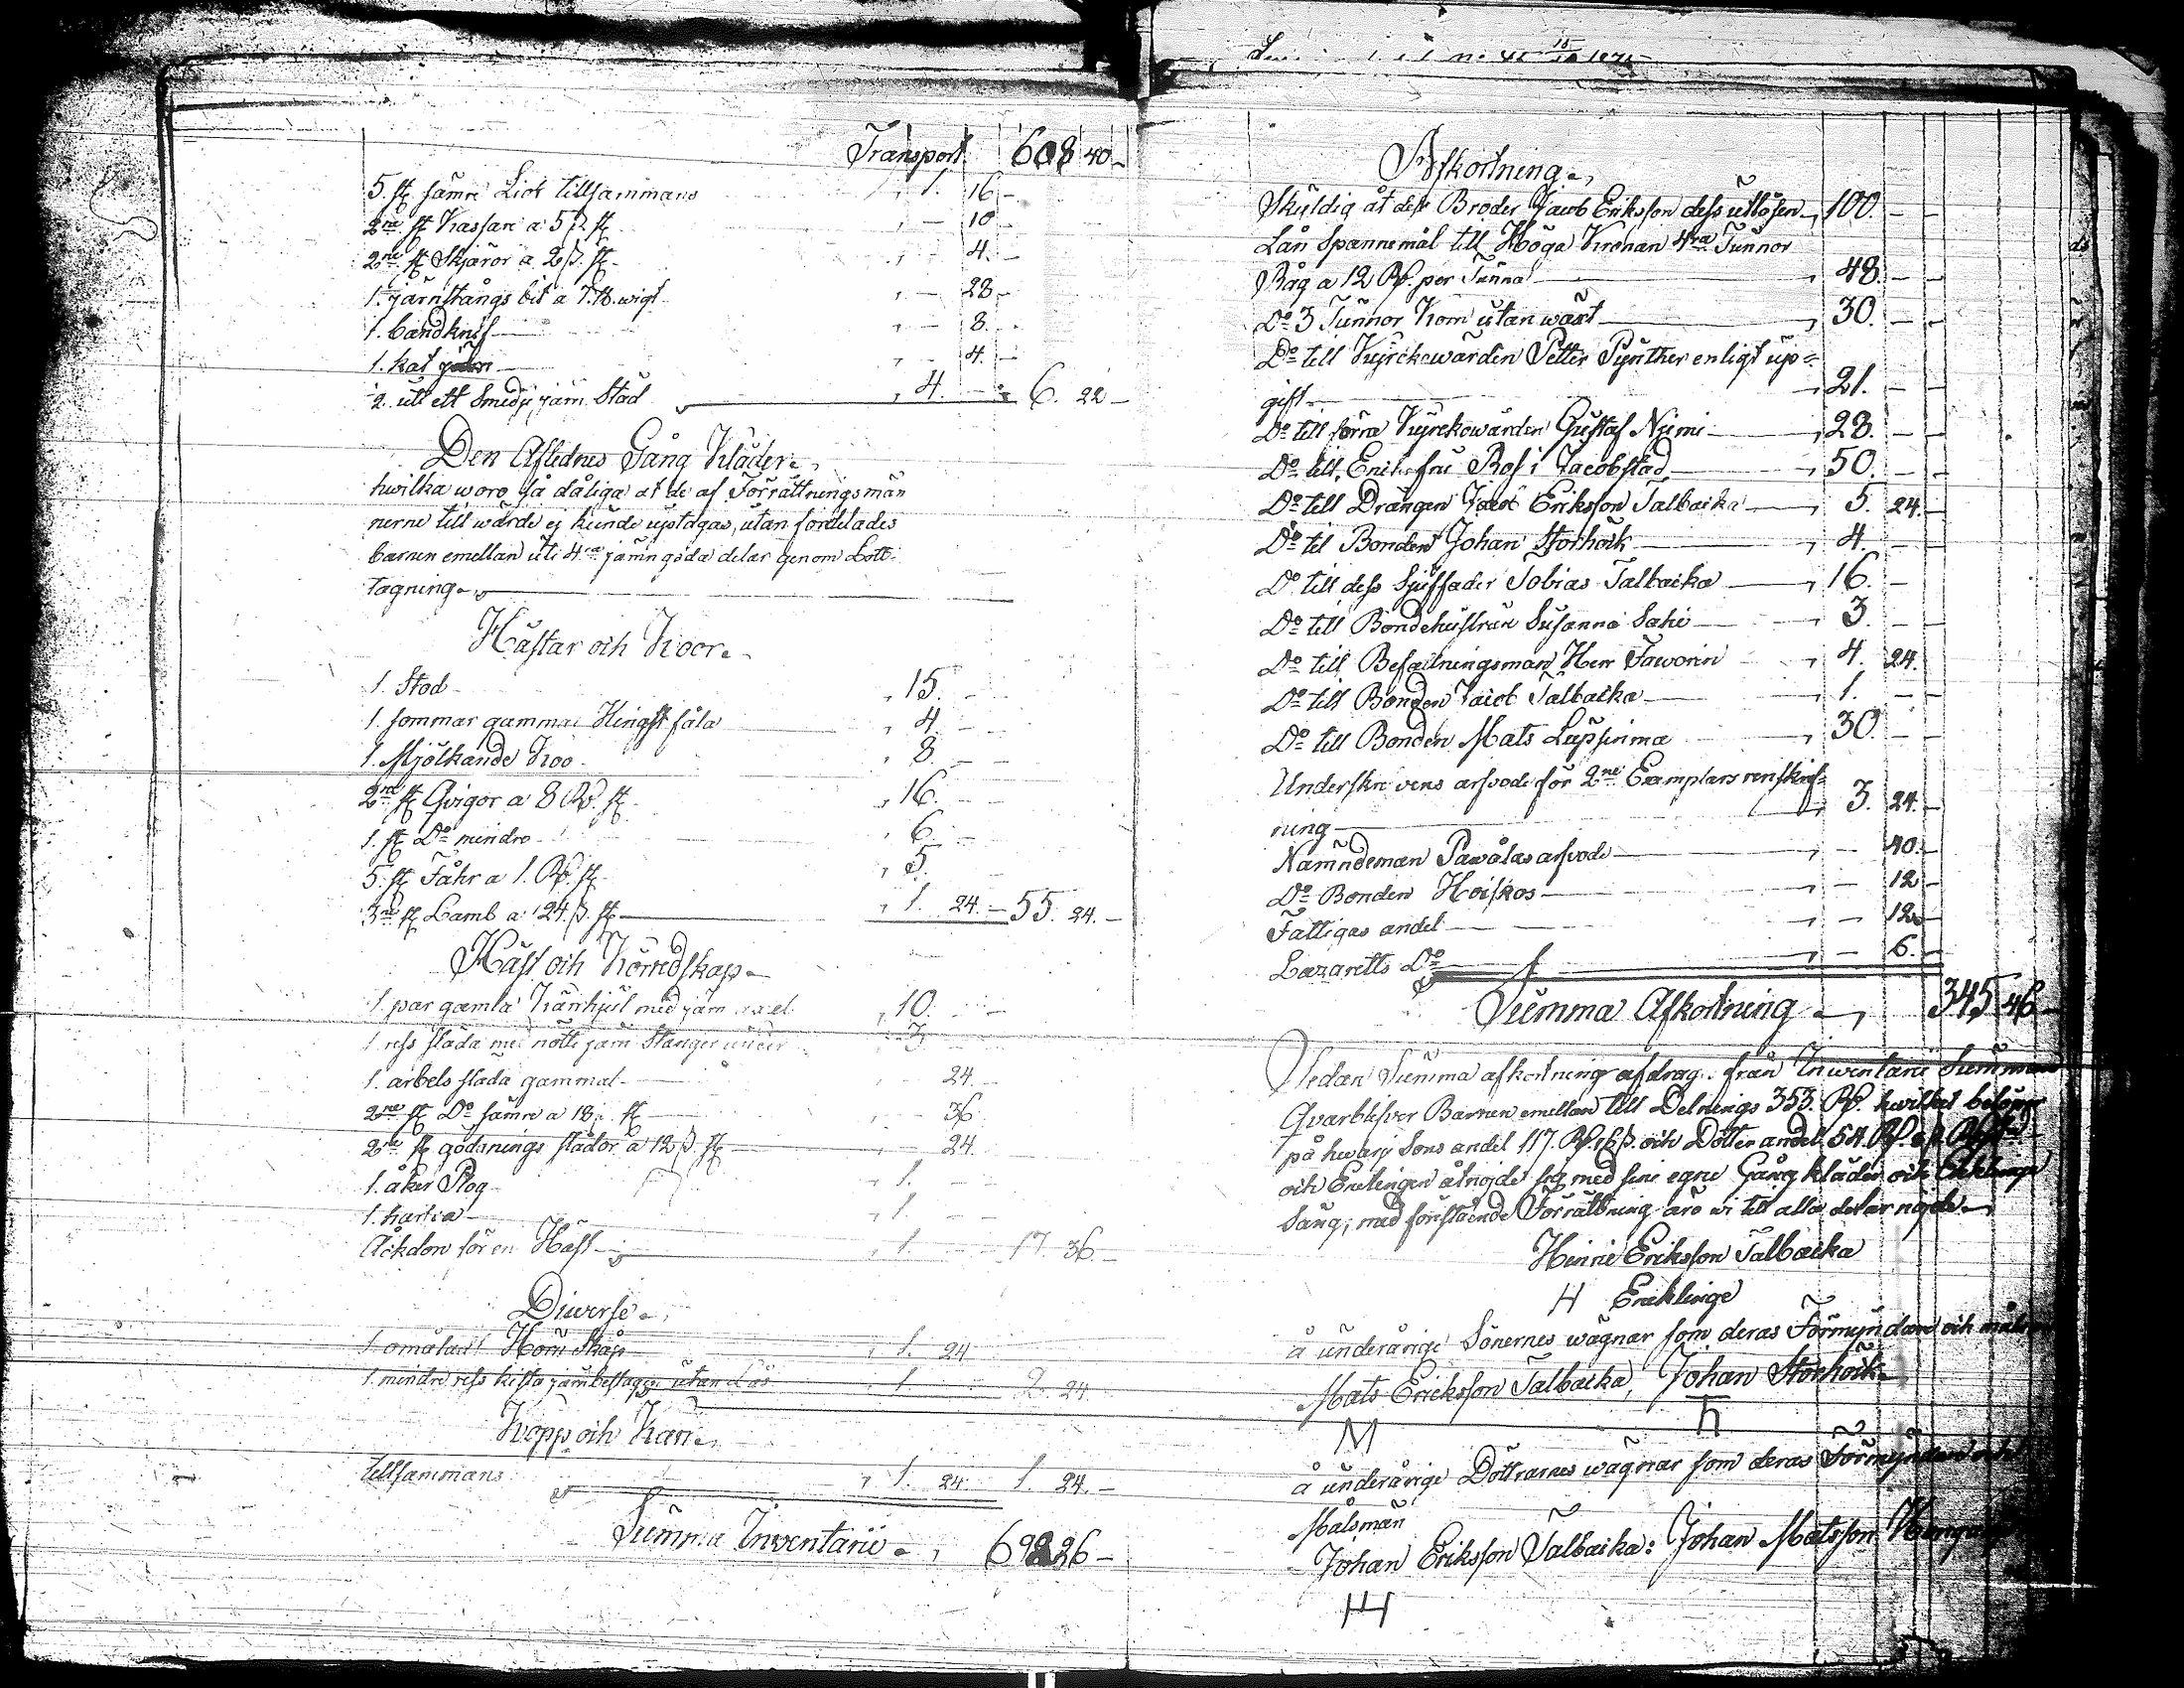 Transport 608 40 -
5. st sämre Liot tillsammans , 1. 16 -
2ne st Krassare a 5 ß. st , - 10
2ne st Skjäror a 2 ß. st , - 4. -
1. järnstångs bit a 7. ℔. wigt , - 28 -
1. bandknif , - 8.
1. kat järn , - 4. -
2. utt ett Smedje järn Städ , 4. - 6. 22 -
Den Aflidnes Gång Kläder.
hwilka woro så dåliga at de af Förrättningsmän
nerne till wärde ej kunde uptagas, utan fördelades
barnen emellan uti 4ra jämngoda delar genom Lott-
tagning.
Hästar och Koor.
1. Stod , 15. -
1. sommar gammal Hingst fåla , 4. -
1. Mjölkande Koo , 8. - -
2ne st Qvigor a 8 Rb. st , 16. -
1. st Do mindre , 6. -
5. st Fåhr a 1. Rb. st , 5.
3ne st Lamb a 24. ß. st , 1. 24. - 55. 24. -
Häst och Körredskap.
1. par gamla Kärrhjul med järn axel , 10. -
1. ress släda med nötte järn Stänger under , 3
1. arbets släda gammal , 24. -
2ne st Do sämre a 18. st - 36
2ne st gödnings slädor a 12 ß st - 24.
1. åker Plog , 1. -
1. harfva , 1. -
Åkdon för en Häst , 1. 17. 36. -
Diverse.
1. omåladt Hörn Skåp , 1. 24
1. mindre ress kista järnbeslagen utan Lås , 1 2. 24.
Kopp och Kari.
tillsammans , 1. 24 1. 24. -
Summa Inventarii , 692 26 -
Afkortning.
Skyldig åt dess Broder Jacob Eriksson dess utlösen , 100. - -
Lån Spannemål till Höga Kronan 4ra Tunnor
Råg a 12 Rb. per Tunna , 48. - -
Do 3 Tunnor Korn utan wäxt , 30. - -
Do till Kyrckowärden Petter Pynther enligt up-
gift , 21. - -
Do till förra Kyrckowärden Gustaf Nyimi , 28. - -
Do till Enckefru Ros i Jacobstad , 50. - -
Do till Drängen Jacob Eriksson Talbacka , 5. 24. -
Do til Bonden Johan Storhöik , 4. - -
Do till dess Sjuffader Tobias Talbacka , 16. -
Do till Bondehustrun Susanna Sahi , 3. - -
Do till Befalningsman Herr Faworin , 4. 24.
Do till Bonden Jacob Talbacka , 1. - -
Do till Bonden Mats Luppinma , 30. - -
Underskrevens arfvode för 2ne Exemplars renskrif-
ning , 3. 24. -
Nämndeman Pawålas arfvode , - 40. -
Do Bonden Hoiskos , - 12 -
Fattigas andel , - 12 -
Lazaretts Do , - 6. -
Summa Afkortning , 345 46 -
Sedan Summa afkortning afdrag. från Inwentarii Summan
Qvarblifver Barnen emellan till Delnings 353. Rb. hwilket belöper
på hwarj Sons andel 117. Rb. 16 ß. och Dotter andel 58. Rb.
och Encklingen åtnöjde sig med sine egne Gång kläder och Encklinge
Säng, med förestående Förrättning äro wi til alla delar nöjde.
Hinric Eriksson Talbacka
H Encklinge
å underårige Sönernes wägnar som deras Förmyndare och
Mats Ericksson Talbacka, Johan Storhöik.
M
å underårige Döttrarnes wägnar som deras Förmyndare och
Målsmän
Johan Eriksson Talbacka: Johan Matsson
H